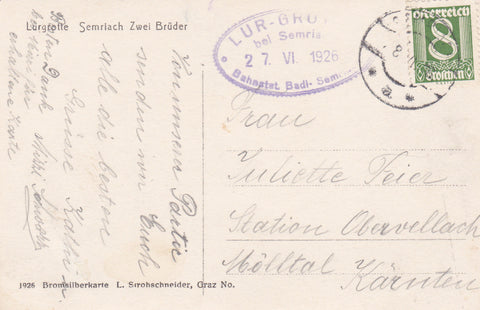 Lurgrotte Semriach Zwei Brüder
Von unserer Partie
senden wir Euch
alle die besten
Grüsse
Besten Dank
erhaltene Karte
LUR-GROT
bei Semria
27. VI. 1926
Bahnstat. Badl-Sem.
Österreich
8
Groschen
Frau
Juliette Feier
Station Obervellach
Mölltal Kärnten
1926 Bromsilberkarte L. Strohschneider, Graz No.